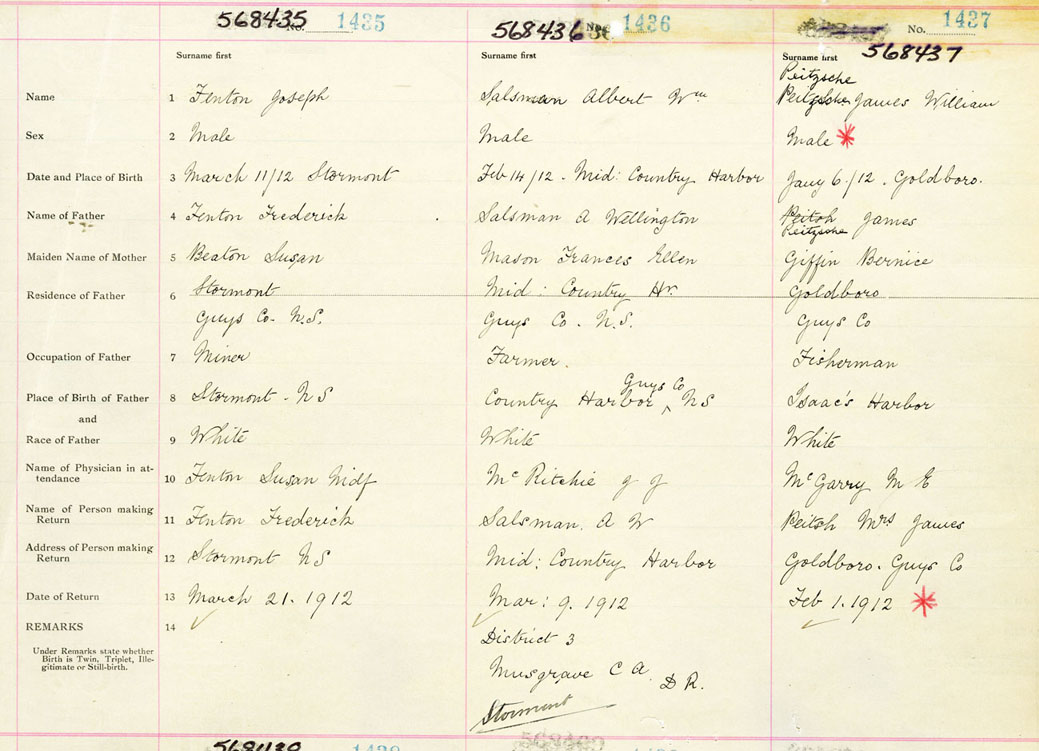 568435 No. 1435 568436 No. 1436 No. 1437
568437
Surname first Surname first Surname first
Peitzsche
Name 1 Fenton Joseph Salsman Albert Wm Peitzsche James William
Sex 2 Male Male Male *
Date and Place of Birth 3 March 11/12 Stormont Feb 14/12. Mid: Country Harbor Jany 6/12. Goldboro.
Name of Father 4 Fenton Frederick Salsman A Wellington Peitch James
Peitzsche
Maiden Name of Mother 5 Beaton Susan Mason Frances Ellen Giffin Bernice
Residence of Father 6 Stormont Mid: Country Hr. Goldboro
Guys Co. N.S. Guys Co. N.S. Guys Co
Occupation of Father 7 Miner Farmer. Fisherman
Guys Co
Place of Birth of Father 8 Stormont - N S Country Harbor ^ NS Isaac's Harbor
and
Race of Father 9 White White White
Name of Physician in at-
tendance 10 Fenton Susan Midf McRitchie J J McGarry M E
Name of Person making
Return 11 Fenton Frederick Salsman. A W Peitch Mrs James
Address of Person making
Return 12 Stormont NS Mid: Country Harbor Goldboro. Guys Co
Date of Return 13 March 21. 1912 Mar: 9. 1912 Feb 1. 1912 *
REMARKS 14
District 3
Under Remarks state whether
Birth is Twin, Triplet, Ille-
gitimate or Still-birth.
Musgrave C A. D R.
Stormont